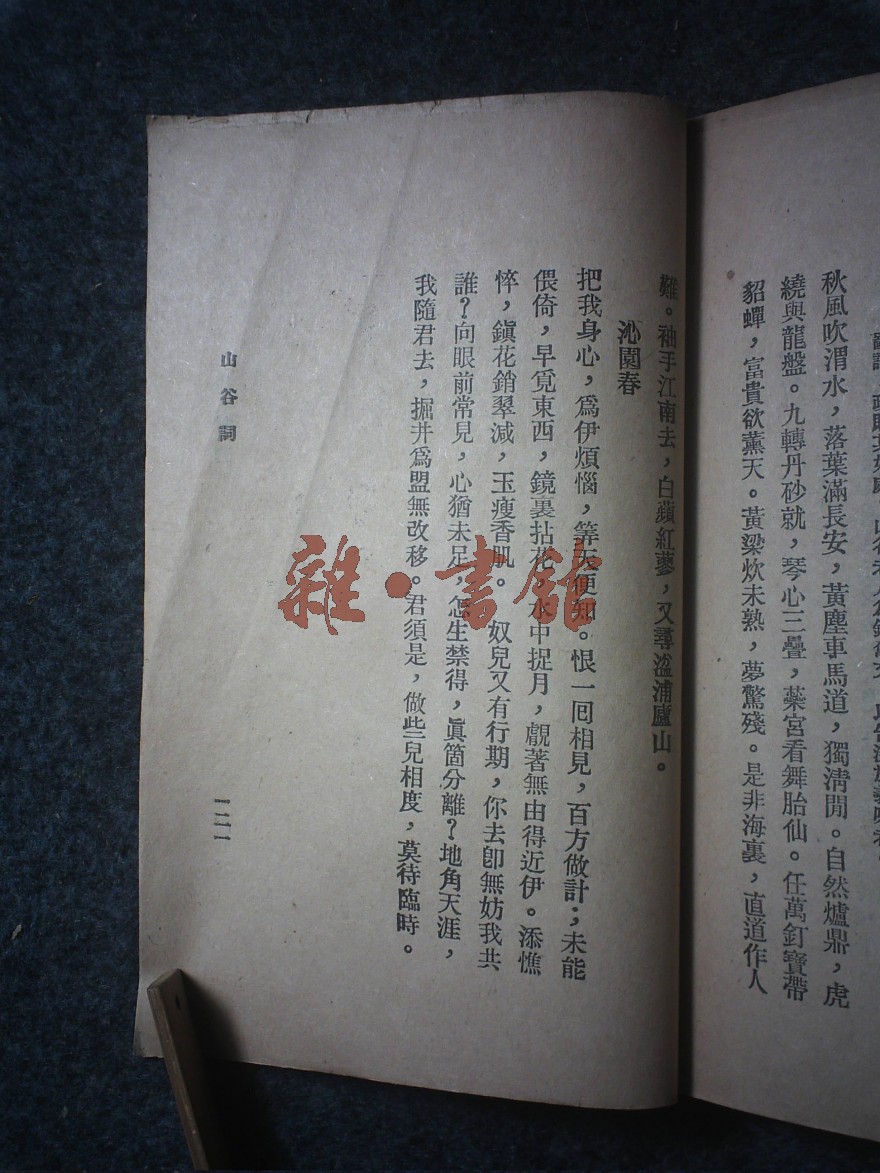 秋風吹渭水，落葉滿長安，黃塵車馬道，獨淸閒。自然爐鼎，虎
繞與龍盤。九轉丹砂就，琴心三疊，蘂宮看舞胎仙。任萬釘寶帶
貂蟬，富貴欲薰天。黃粱炊未熟，夢驚殘。是非海裏，直道作人
難。袖手江南去，白蘋紅蓼，又尋湓浦廬山。
沁園春
把我身心，爲伊煩惱，等天便知。恨一囘相見，百方做計；未能
偎倚，早覓東西，鏡裏拈花，水中捉月，覰著無由得近伊。添憔
悴，鎭花銷翠減，玉瘦香肌。　奴兒又有行期，你去卽無妨我共
誰？向眼前常見，心猶未足，怎生禁得，眞箇分離？地角天涯，
我隨君去，掘井爲盟無改移。君須是，做些兒相度，莫待臨時。
山谷詞
一二一
雜·書館